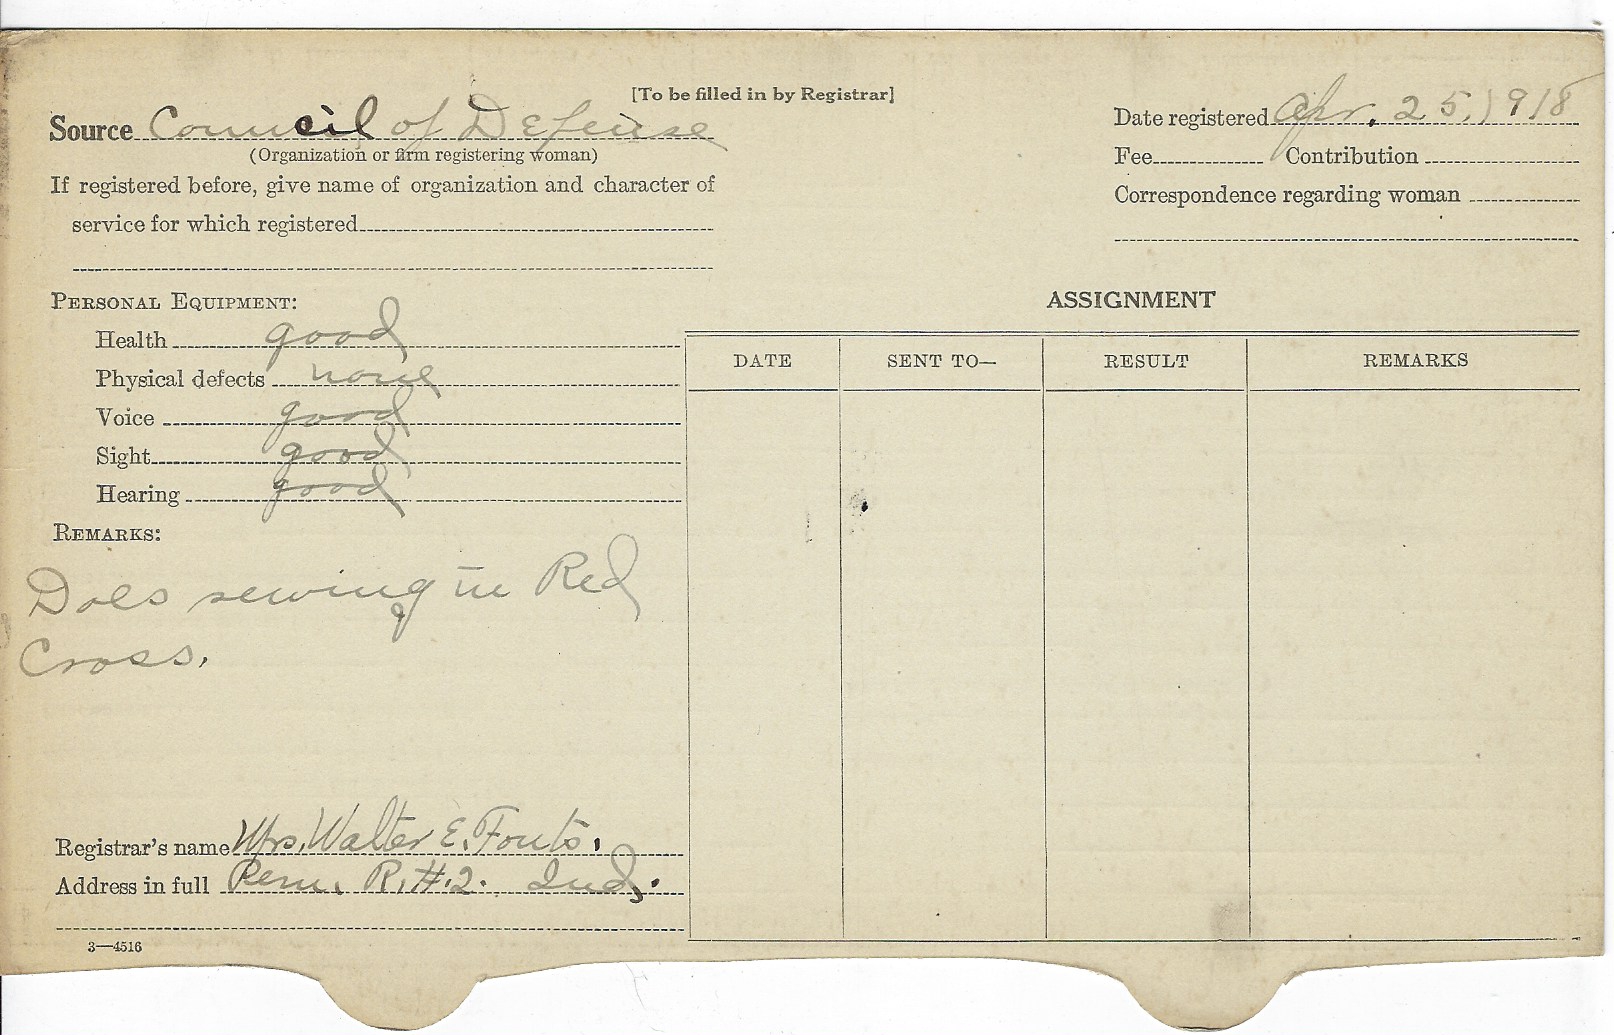 [To be filled in by Registrar]
Source Council of Defense
(Organization or firm registering woman)
If registered before, give name of organization and character of
service for which registered
Date registered Apr. 25, 1918
Fee Contribution
Correspondence regarding woman
PERSONAL EQUIPMENT:
Health good
Physical defects none
Voice good
Sight good
Hearing good
REMARKS:
Does sewing in Red
Cross.
Registrar's name Mrs. Walter E. Fouts.
Address in full Peru, R.#.2. Ind.
3—4516
ASSIGNMENT
DATE SENT TO— RESULT REMARKS